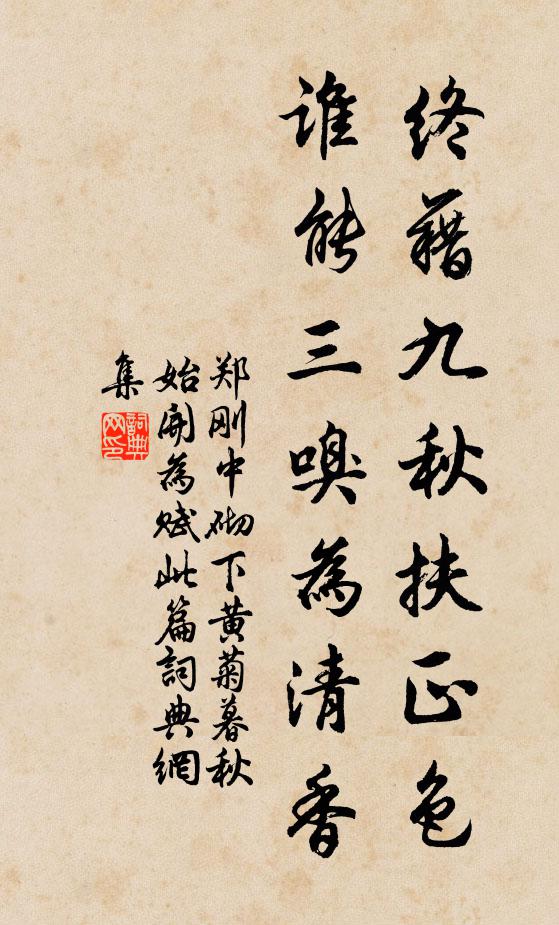 终藉九秋扶正色
谁能三嗅為清香
郑刚中砌下黄菊暮秋
始開為赋此篇詞典網
集
詞典
网印